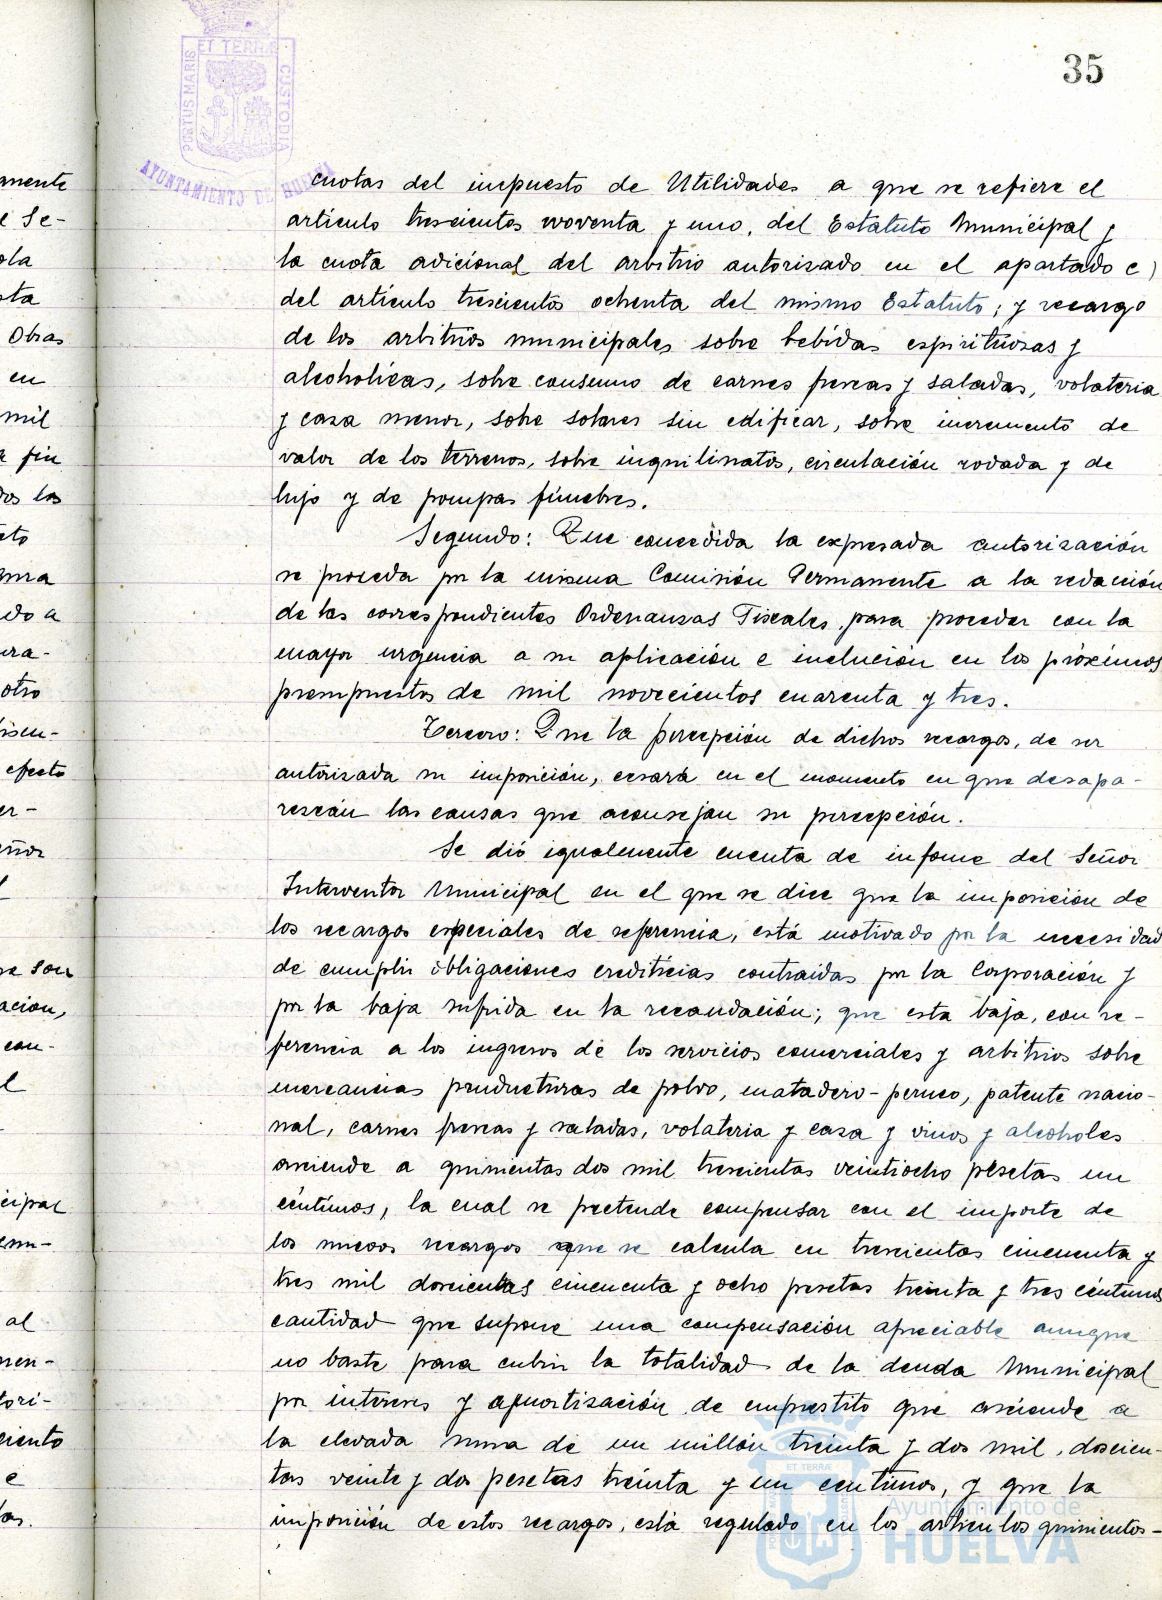 35
PORTUS MARIS ET TERRÆ CUSTODIA
AYUNTAMIENTO DE HUELVA
cuotas del impuesto de Utilidades a que se refiere el
artículo trescientos noventa y uno, del Estatuto Municipal y
la cuota adicional del arbitrio autorizado en el apartado c)
del artículo trescientos ochenta del mismo Estatuto; y recargo
de los arbitrios municipales sobre bebidas espirituosas y
alcoholicas, sobre consumo de carnes frescas y saladas, volateria
y caza menor, sobre solares sin edificar, sobre incremento de
valor de los terrenos, sobre inquilinatos, circulación rodada y de
lujo y de pompas fúnebres.
Segundo: Que concedida la expresada autorización
se proceda por la misma Comisión Permanente a la redacción
de las correspondientes Ordenanzas Fiscales, para proceder con la
mayor urgencia a su aplicación e inclución en los próximos
presupuestos de mil novecientos cuarenta y tres.
Tercero: Que la percepción de dichos recargos, de ser
autorizada su imposición, cesará en el momento en que desapa-
rescan las causas que aconsejan su percepción.
Se dió igualmente cuenta de informe del Señor
Interventor Municipal en el que se dice que la imposición de
los recargos especiales de referencia, está motivado por la necesidad
de cumplir obligaciones crediticias contraidas por la Corporación y
por la baja sufrida en la recaudación; que esta baja, con re-
ferencia a los ingresos de los servicios comerciales y arbitrios sobre
mercancias productoras de polvo, matadero-perneo, patente nacio-
nal, carnes frescas y saladas, volateria y caza y vinos y alcoholes
asciende a quinientas dos mil trescientas veintiocho pesetas un
céntimos, la cual se pretende compensar con el importe de
los nuevos recargos que se calcula en trescientas cincuenta y
tres mil doscientas cincuenta y ocho pesetas treinta y tres céntimos
cantidad que supone una compensación apreciable aunque
no baste para cubrir la totalidad de la deuda Municipal
por intereses y amortización de empréstito que asciende a
la elevada suma de un millón treinta y dos mil, doscien-
tas veinte y dos pesetas treinta y un centimos, y que la
imposición de estos recargos, está regulado en los artículos quinientos-
amente
e Se-
ola
sta
Obras
en
mil
fin
dos los
cto
ma
do a
ra-
otro
efecto
er-
eñor
l
son
ación,
con-
l
cipal
al
men-
tori-
ciento
e
as.
Ayuntamiento de
HUELVA